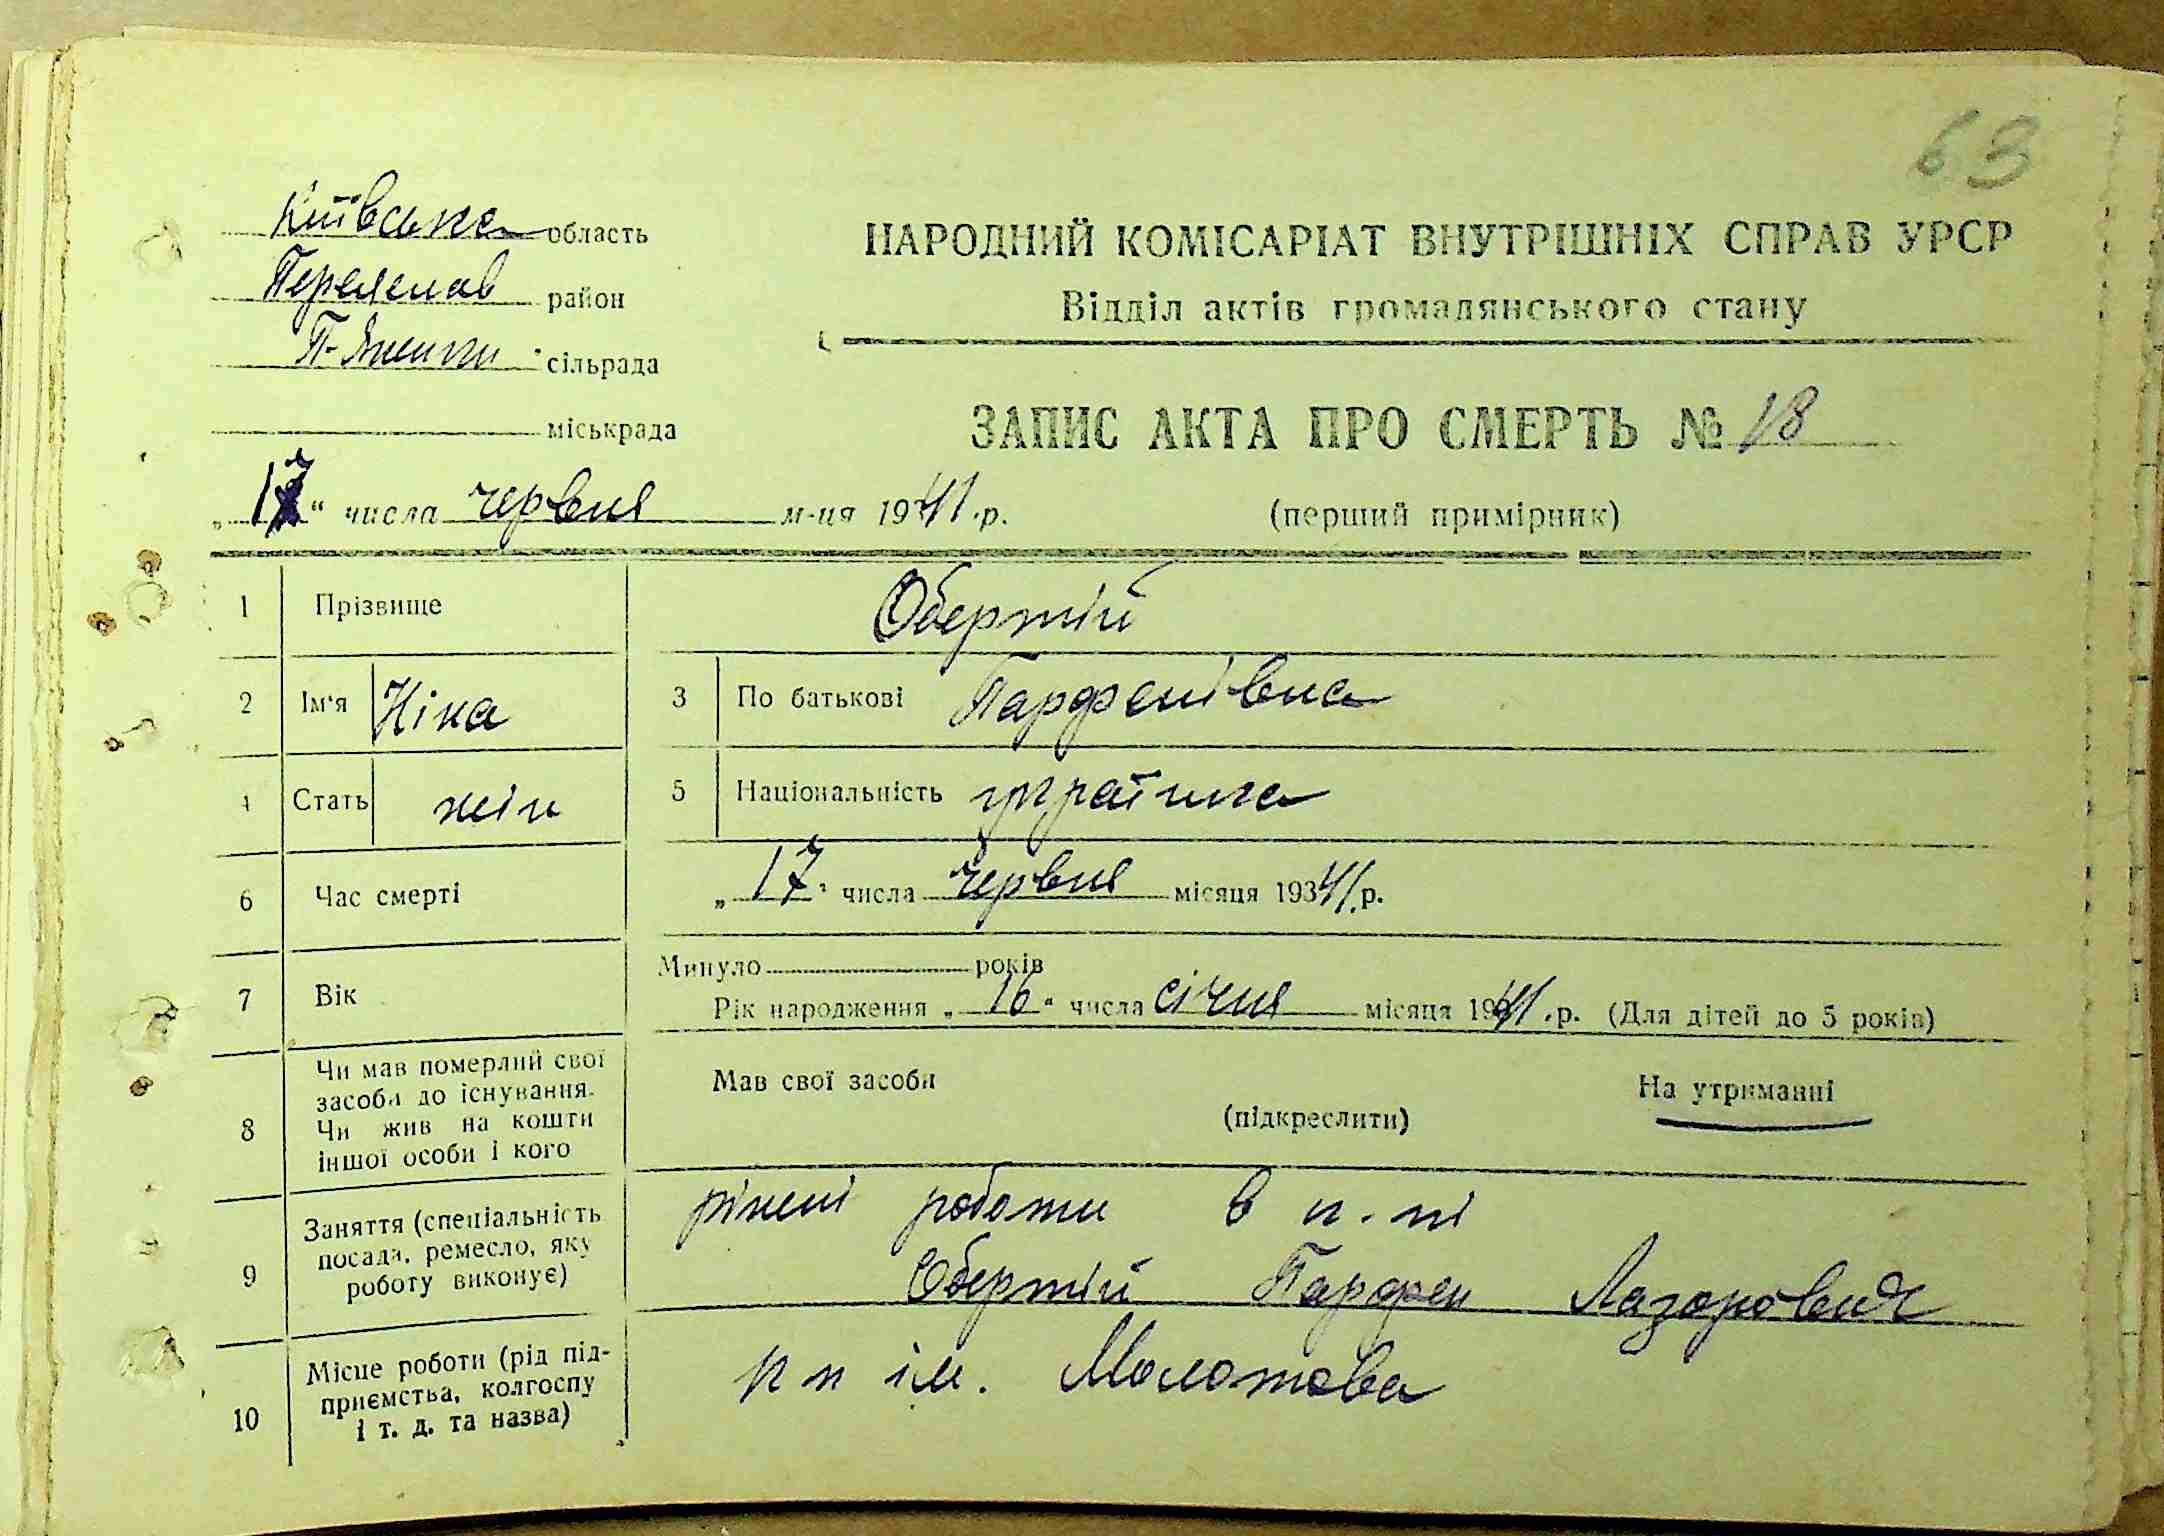 63
Київська область
Переяслав район
сільрада
міськрада
НАРОДНИЙ КОМІСАРІАТ ВНУТРІШНІХ СПРАВ УРСР
Відділ актів громадянського стану
ЗАПИС АКТА ПРО СМЕРТЬ № 18
(перший примірник)
„17“ числа червня м-ця 1941.р.
1 Прізвище Обертій
2 Ім'я Ніна 3 По батькові Парфенівна
4 Стать жін 5 Національність українка
6 Час смерті „17“ числа червня місяця 19341.р.
7 Вік Минуло років
Рік народження „16“ числа січня місяця 1941.р. (Для дітей до 5 років)
8 Чи мав померлий свої
засоби до існування.
Чи жив на кошти
іншої особи і кого
Мав свої засоби
(підкреслити)
На утриманні
9 Заняття (спеціальність
посада, ремесло, яку
роботу виконує)
різні роботи в к.пі
Обертій Парфен Лазорович
10 Місце роботи (рід під-
приємства, колгоспу
і т. д. та назва)
кп ім. Молотова